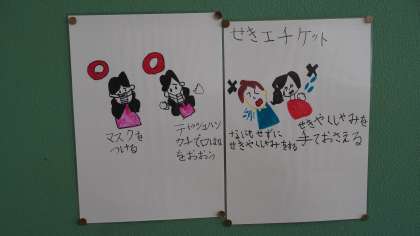 せきエチケット
マスクを
つける
ティシュハン
カチで口はな
をおおう
なにもせずに
せきやくしゃみをする
せきやくしゃみを
手でおさえる